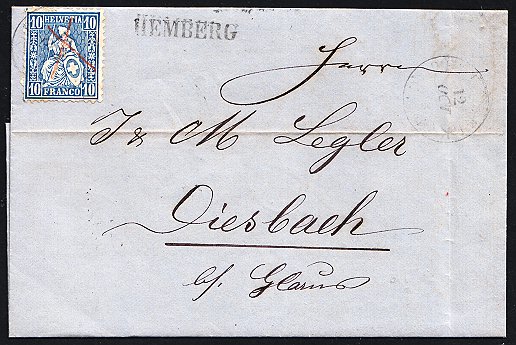 10 HELVETIA 10
10 FRANCO 10
HEMBERG
Herren
J & M Legler
Diesbach
b/. Glarus